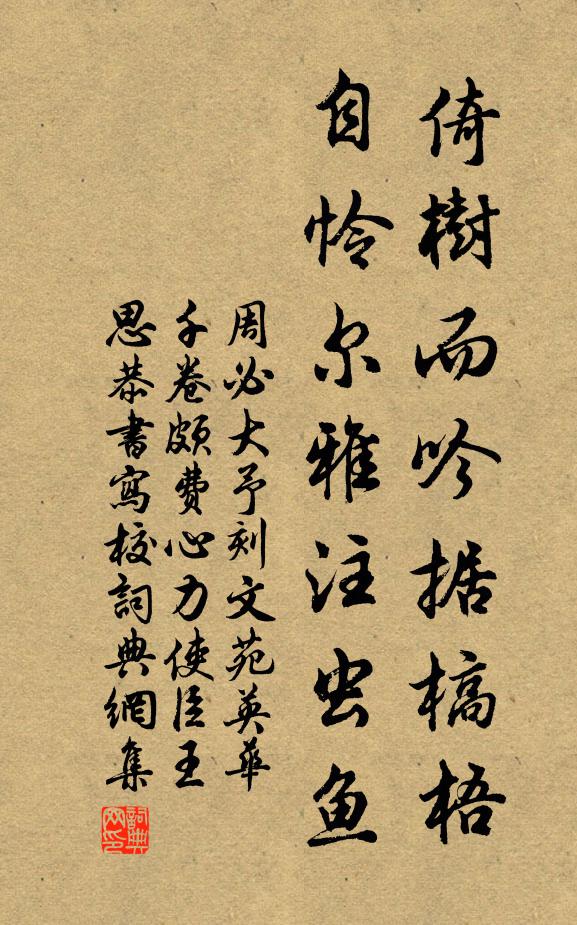 倚樹而吟据槁梧
自怜尔雅注虫鱼
周必大予刻文苑英華
千卷頗費心力使臣王
思恭書寫校詞典網集
詞典網印